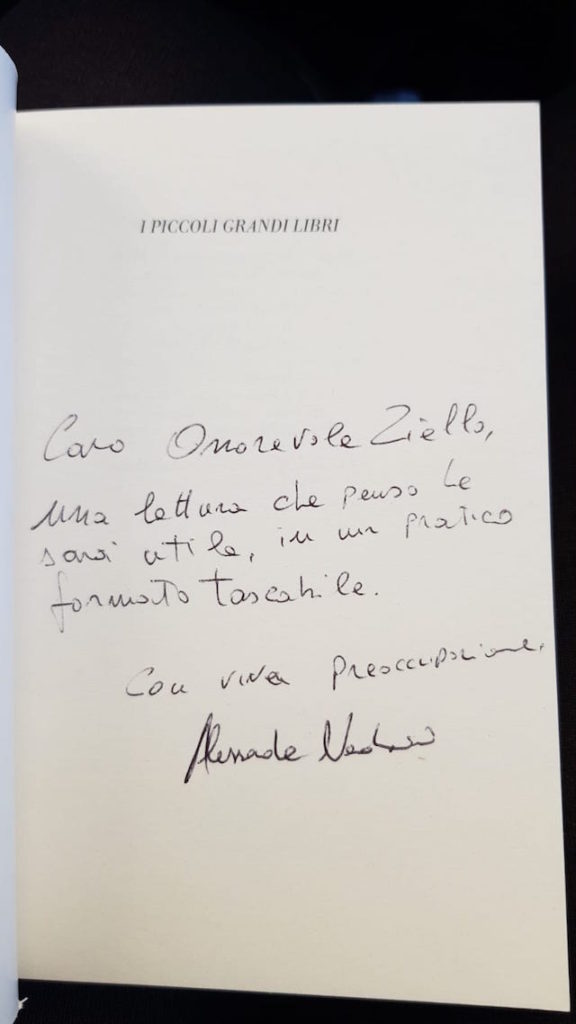 I PICCOLI GRANDI LIBRI
Caro Onorevole Ziello,
una lettura che penso le
sarà utile, in un pratico
formato tascabile.
Con viva preoccupazione,